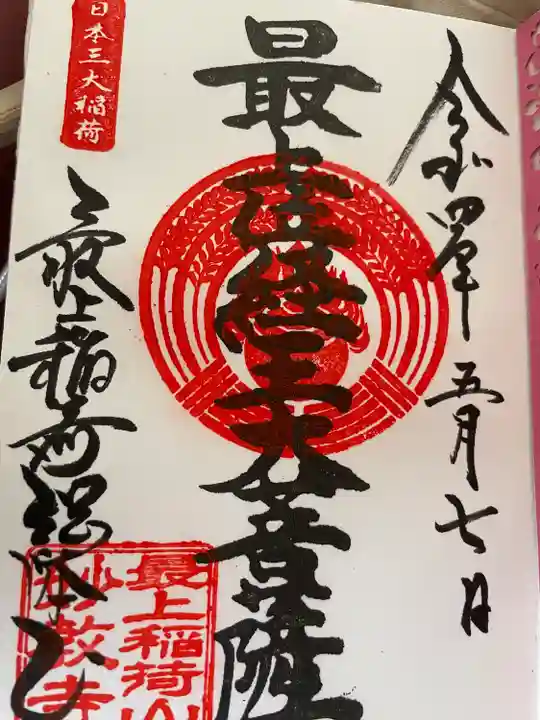 令和四年五月七日
最上位経王大菩薩
日本三大稲荷
最上稲荷総本山
最上稲荷山
妙教寺